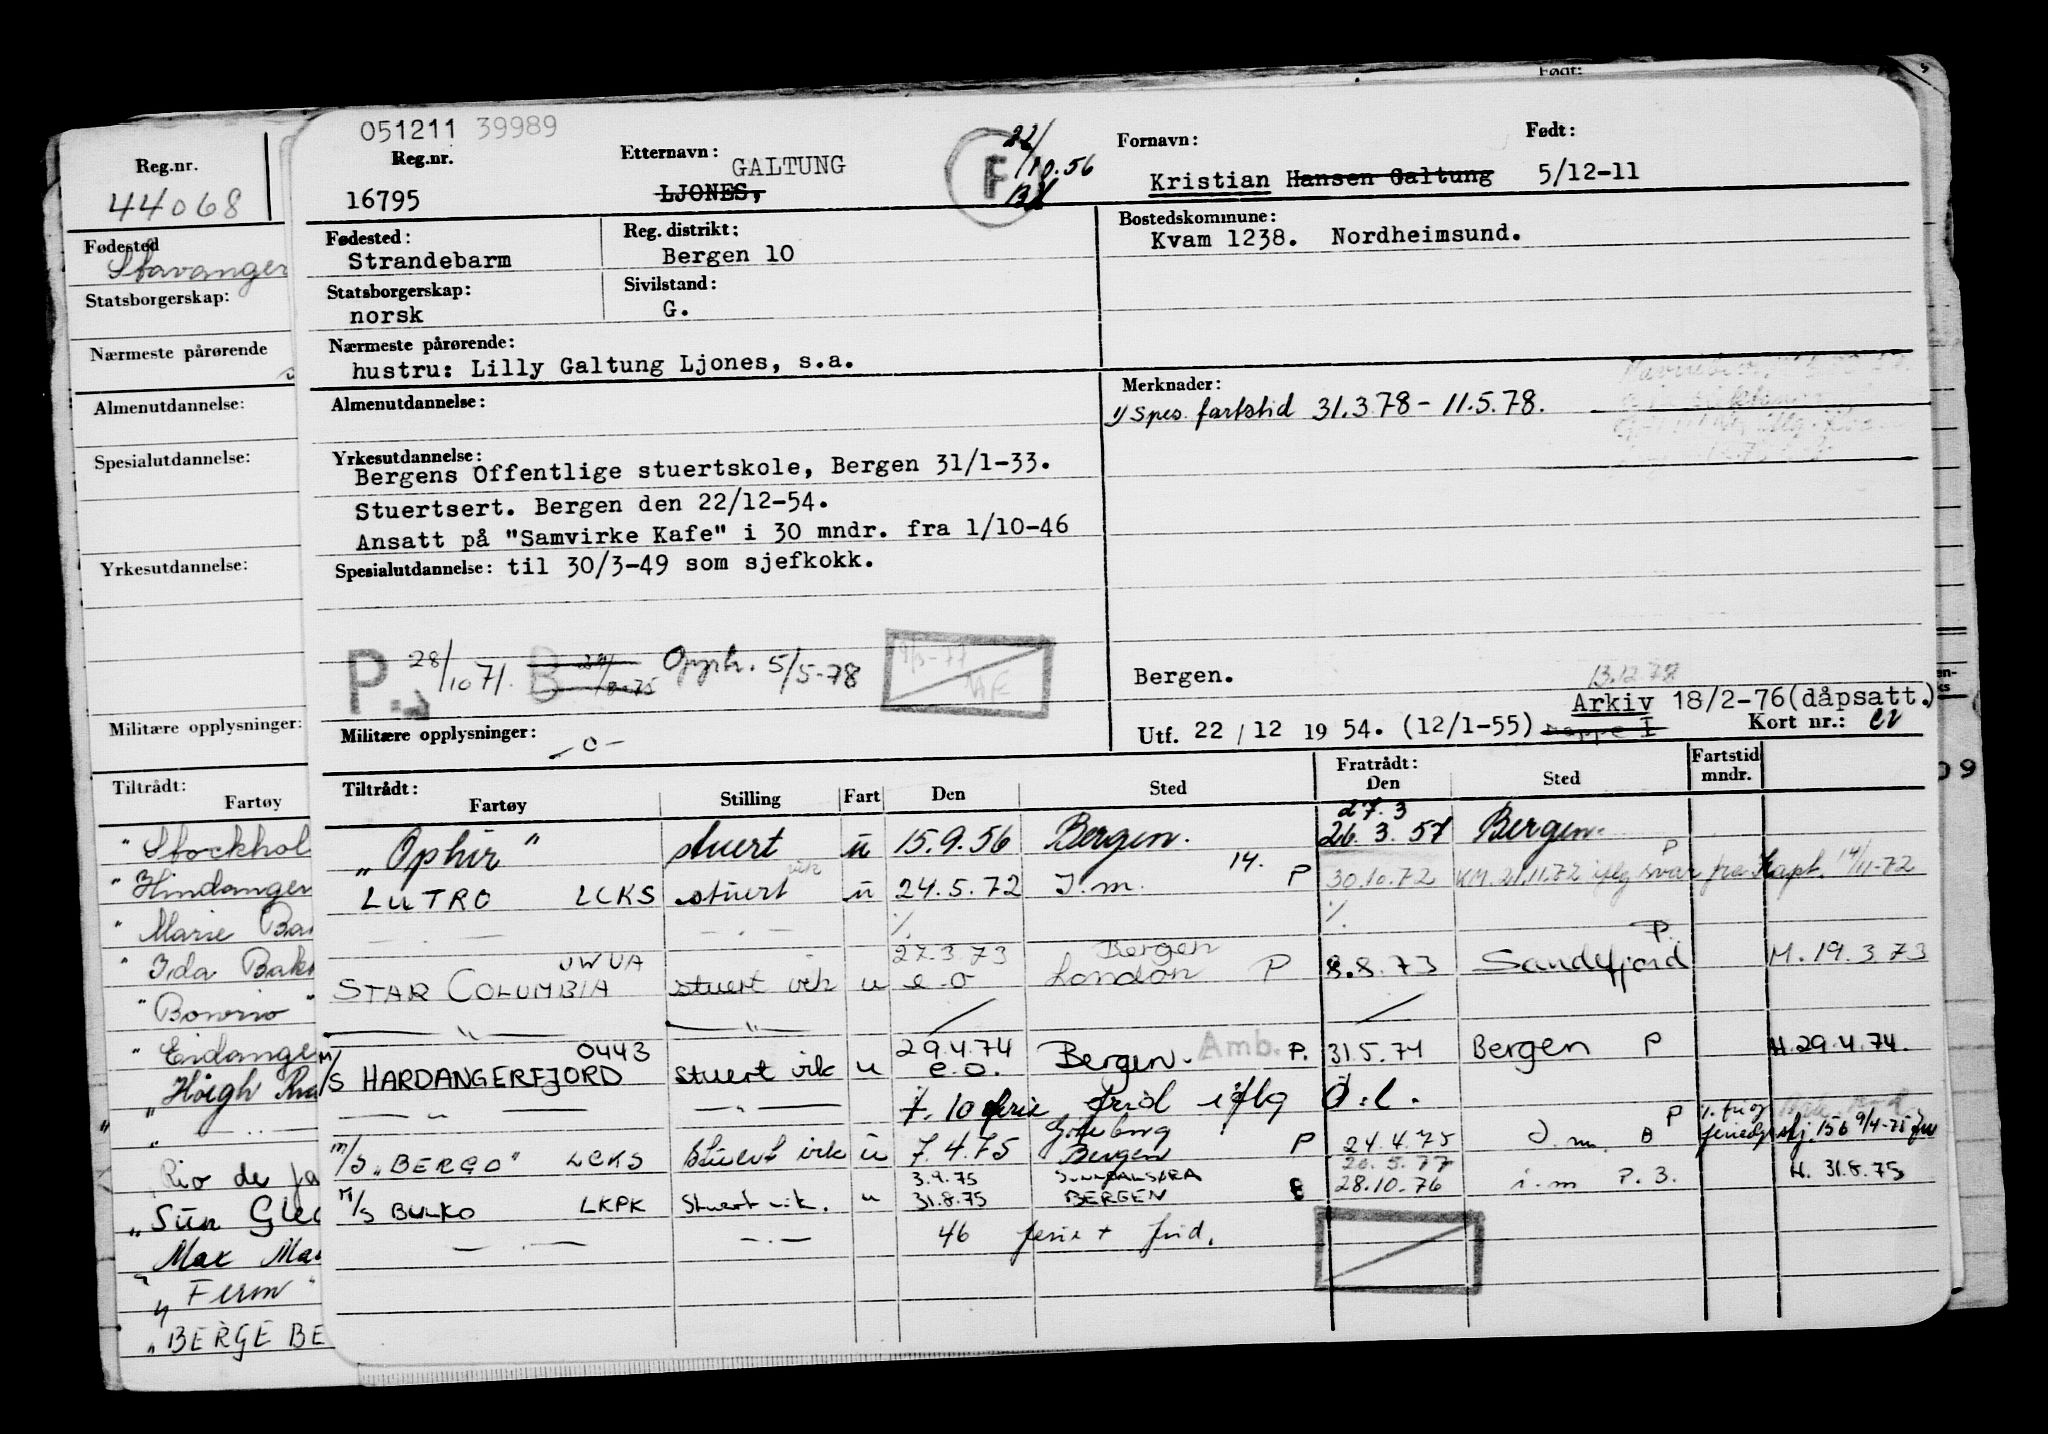 Født:
051211 39989
Reg.nr.
16795
Etternavn:
GALTUNG
LJONES,
F
22/10.56
Fornavn:
Kristian Hansen Galtung
Født:
5/12-11
Fødested:
Strandebarm
Reg. distrikt:
Bergen 10
Bostedskommune:
Kvam 1238. Nordheimsund.
Statsborgerskap:
norsk
Sivilstand:
G.
Nærmeste pårørende:
hustru: Lilly Galtung Ljones, s.a.
Almenutdannelse:
Merknader:
1) Spes. fartstid 31.3.78 - 11.5.78.
Yrkesutdannelse:
Bergens Offentlige stuertskole, Bergen 31/1-33.
Stuertsert. Bergen den 22/12-54.
Ansatt på "Samvirke Kafe" i 30 mndr. fra 1/10-46
Spesialutdannelse: til 30/3-49 som sjefkokk.
P. 28/10 71. B Opph. 5/5-78
Bergen.
13.12.78
Arkiv 18/2-76(dåpsatt.)
Utf. 22 / 12 19 54. (12/1-55) Mappe I Kort nr.:
Militære opplysninger:
- o -
Tiltrådt:
Fartøy Stilling Fart Den Sted
Fratrådt:
Den Sted
Fartstid
mndr.
27.3
"Ophir" stuert u 15.9.56 Bergen. 26.3.57 Bergen.
LUTRO LCKS stuert vik u 24.5.72 I.m. 14. P 30.10.72 P KM. 21.11.72 iflg svar fra Kapt. 14/11-72
27.3.73 Bergen P.
STAR COLUMBIA UWUA stuert vik u e.o London P 8.8.73 Sandefjord M. 19.3.73
M/S HARDANGERFJORD 0443 stuert vik u 29.4.74 e.o. Bergen. Amb. P. 31.5.74 Bergen P H. 29.4.74.
7. 10 ferie frid iflg
Göteborg
M/S "BERGO" LCKS Stuert vik u 7.4.75 Bergen P 24.4.75 I.m. B P
3.9.75 SUNNDALSØRA 20.5.77
M/S BULKO LKPK Stuert vik. u 31.8.75 BERGEN 28.10.76 i.m P. 3. H. 31.8.75
46 ferie + frid.
Reg.nr.
44068
Fødested
Stavanger
Statsborgerskap:
Nærmeste pårørende
Almenutdannelse:
Spesialutdannelse:
Yrkesutdannelse:
Militære opplysninger:
Tiltrådt:
Fartøy
"Stockhol
"Hindanger
"Marie Ba
"Ida Bak
"Bowrio"
"Eidange
"Høigh
Rio de Ja
"Sun Gle
Max Ma
"Ferm"
"BERGE BE
09